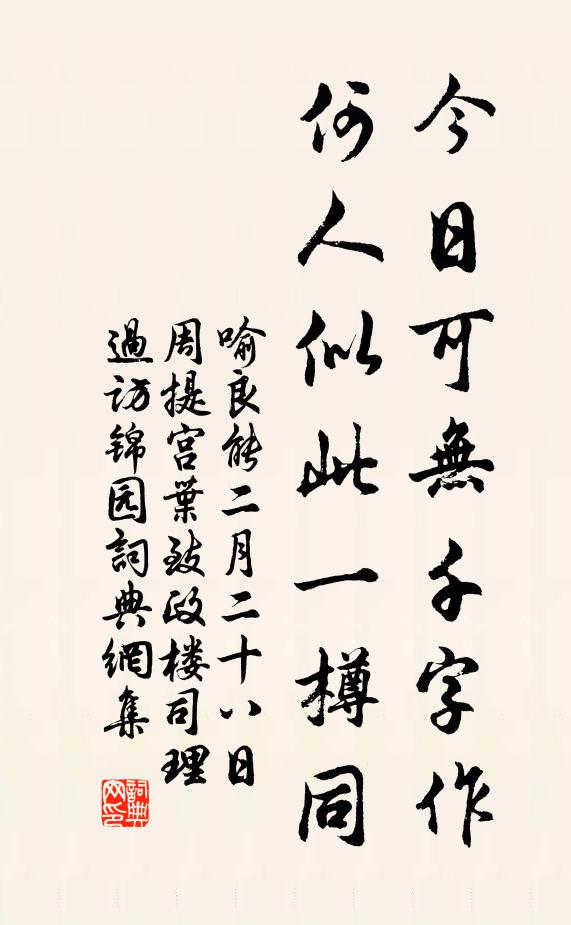 今日可無千字作
何人似此一樽同
喻良能二月二十八日
周提宫葉致政楼司理
過访锦园詞典網集
詞典网印